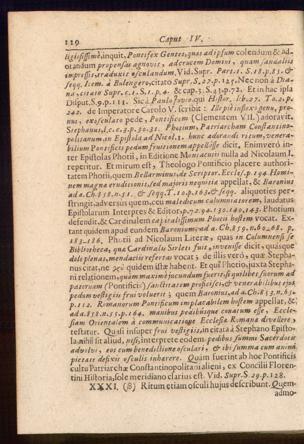 120 Caput IV.
ligiosissimè, inquit, Pontifex Gentes, quas ad ipsum colendum & ad-
orandum propensas agnovit, aderucem Domini, quam sandaliis
impressit, traduxit osculandum. Vid. Supr. Part. 1. S. 18. p. 81. &
seqq. Item. à Bulengero, citato Supr. S. 27. p. 125. Nec non à Dia-
na, citato Supr. c. 1. S. 1. p. 4. & cap. 3. S. 23. p. 72. Et in hac ipsa
Disput. S. 9. p. 111. Sic à Paulo Jovio qui Histor. lib. 27. To. 2. p.
242. de Imperatore Carolo V. scribit: Ille piè inflexo genu, pro-
nus, exosculato pede, Pontificem (Clementem VII.) adoravit.
Stephanus, l. c. c. 3. p. 30. 31. Photium, Patriarcham Constantino-
politanum in Epistola ad Nicol. 1. hunc adorandi ritum, venera-
bilium Pontificis pedum fruitionem appellasse dicit, Enimverò in-
ter Epistolas Photii, in Editione Monacutii nulla ad Nicolaum I.
reperitur. Et mirum est, Theologo Pontificio placere authori-
tatem Photii, quem Bellarminus, de Scriptor. Eccles. p. 194. Homi-
nem magna eruditionis, sed majoris nequitia appellat, & Baronius
ad a. Ch. 858. n. 51. & seqq. T. 10. p. 163. & seqq. aliquoties per-
stringit, adversus quem, ceu maledicum calumniatorem, laudatus
Epistolarum Interpres & Editor, p. 72. 90. 132. 140. 143. Photium
defendit, & Cardinalem rabiosissimum Photii hostem vocat. Ex-
tant quidem apud eundem Baronium ad a. Ch. 859. n. 62. 68. p.
183-186. Photii ad Nicolaum Literæ, quas in Columnensi se
Bibliotheca, quæ Cardinalis Sirleti fuit, invenisse dicit, quasque
doli plenas, mendaciis refertas vocat; de illis verò, quæ Stepha-
nus citat, ne γρῦ quidem iste habent. Et qui Photio, juxta Stepha-
ni relationem, quàm maxime jucundum fuerit, si quolibet suorum ad
paternum (Pontificis) sanctitatem profectos, & venerabilibus ejus
pedum vestigiis frui voluerit; quem Baronius, ad a. Ch. 853. n. 63.
p. 112. Romanorum Pontificum implacabilem hostem appellat, &,
ad a. 858. n. 53. p. 164. manibus pedibusque conatum esse, Eccle-
siam Orientalem à communicatione Ecclesia Romana divellere,
testatur. Quasi insuper frui vestigiis, in citata à Stephano Episto-
la nihil sit aliud, nisi, interprete eodem pedibus summi Sacerdotis
advolvi, eos cum benedictione osculari, & ibi summa cum animi
pietate defixis osculis inhærere. Quàm fuerint ab hoc Pontificis
cultu Patriarchæ Constantinopolitani alieni, ex Concilii Floren-
tini Historia, sole meridiano clarius est. Vid. Supr. S. 29. p. 128.
XXXI. (β) Ritum etiam osculi hujus describunt. Quem-
admo-